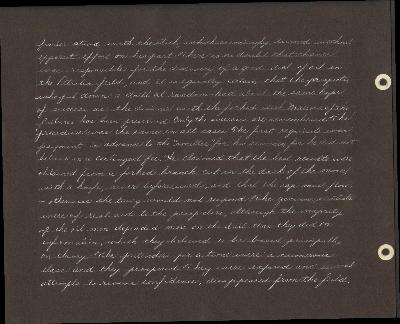 firmer stood with the stick, which seemingly turned without
apparent effort on his part. There is no doubt that chance
was responsible for the discovery of a good deal of oil in
the field, and it is equally certain that the prospector
who put down a drill at random had about the same hope
of success as the diviner with the forked stick.
has been preserved. Only the successes are remembered. The
procedure was the same in all cases. The first requisite was
payment in advance to the "smeller" for his services, for he did not
believe in a contingent fee. He claimed that the best results were
obtained from a forked branch cut in the dark of the moon
with a knife never before used, and that the sap must flow,
otherwise the twig would not respond. The
were of real aid to the prospector, although the majority
of the oil men depended more on the drill than they did on
information, which they believed to be based principally
on theory. The pretenders for a time were a numerous
class and they prospered. They were exposed and several
attempts to renew confidence, disappeared from the field.